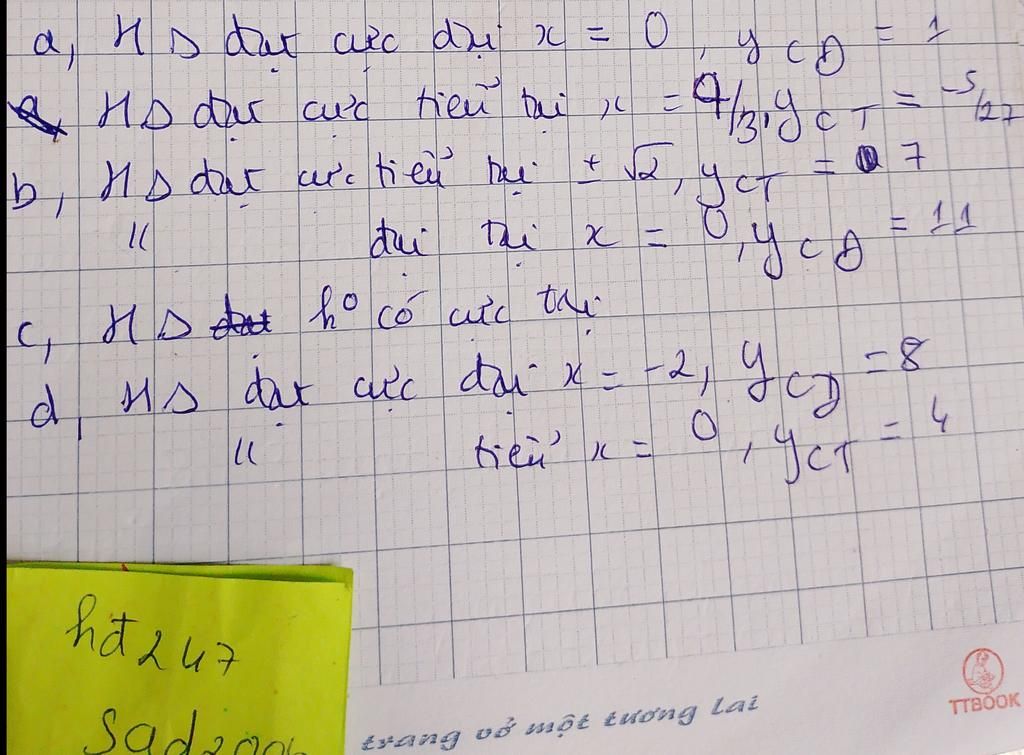 a, HS đạt cực đại x = 0, yCĐ = 1
HS đạt cực tiểu tại x = 4/3, yCT = -5/27
b, HS đạt cực tiểu tại ± √2, yCT = 7
〃 đại tại x = 0, yCĐ = 11
c, HS đạt ho có cực trị
d, HS đạt cực đại x = -2, yCĐ = 8
〃 tiểu x = 0, yCT = 4
hđ247
trang vở một tương lai
TTBOOK